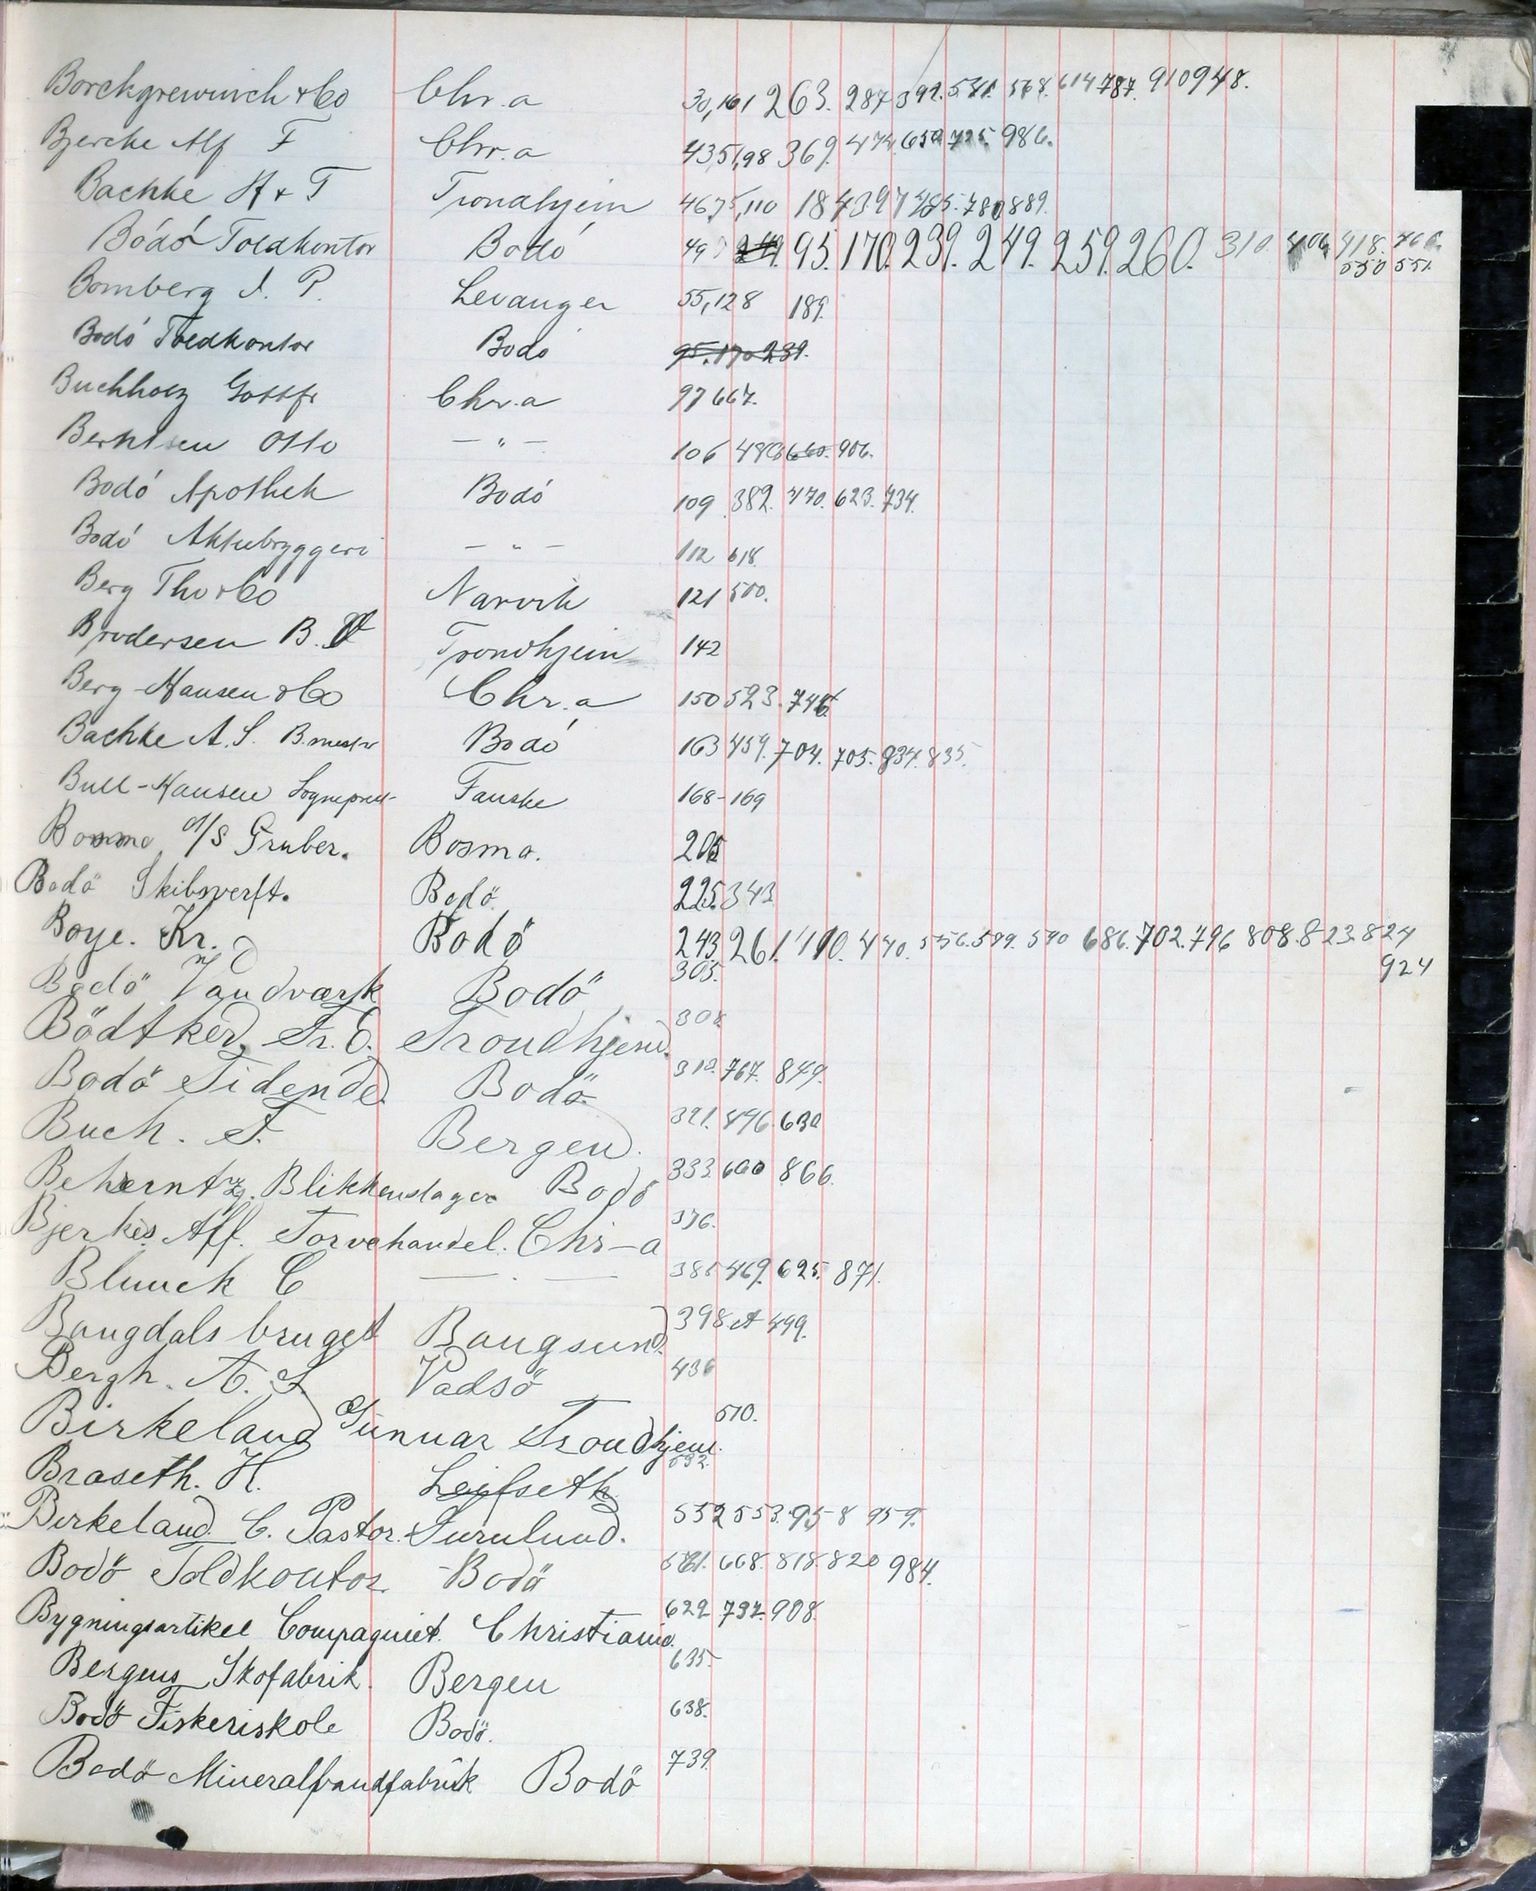 Borchgrewinch & Co Chr.a 30, 161 263. 287 392. 568. 614 787. 910 948.
Bjercke Alf F Chr.a 43 51, 98 369. 474. 659 725. 986.
Bachke H & T Trondhjem 46, 75, 110 184 397 485. 780 889.
Bodó Toldkontor Bodó 49 95. 170. 239. 249. 259. 260. 310. 406 418. 460. 550 551.
Bomberg J. P. Levanger 55, 128 189.
Bodó Toldkontor Bodó 95. 170 239.
Buchholz Gottfr Chr.a 97 667.
Berntsen Otto — " — 106 483 660. 906.
Bodó Apothek Bodó 109 382. 470. 623. 734.
Bodó Aktiebryggeri — " — 112 618.
Berg Tho & Co Narvik 121 500.
Brodersen B. Trondhjem 142
Berg-Hansen & Co Chr.a 150 523. 746
Bachke A. S. B.mestr Bodó 163 459. 704. 705. 834. 835.
Bull-Hansen Sognepræst Fauske 168-169
Bosmo A/S Gruber. Bosmo. 205
Bodö Skibsverft. Bodö. 225. 343.
Boye. Kr. Bodö 243. 261. 410. 440. 556. 589. 590 686. 702. 796 808. 823. 824 924
Bodö Vandværk Bodö 305.
Bödtker, Fr. E. Trondhjem. 308
Bodö Tidende Bodö 312. 767. 849.
Buch. F. Bergen. 321. 496. 630
Behrentz. Blikkenslager Bodö 333. 600 866.
Bjerkes Alf. Farvehandel. Chr-a 376.
Blunck C — . — 385 469. 625. 871.
Bangdals bruget Bangsund. 398 A 499.
Bergh. A. S. Vadsö 436
Birkeland Gunnar Trondhjem. 510.
Braseth. H. Leifseth 532.
Birkeland. C. Pastor. Furulund. 552 553. 958 959.
Bodö Toldkontor - Bodö 621. 668. 818. 820 984.
Bygningsartikel Compagniet. Christiania. 629 732. 908.
Bergens Skofabrik. Bergen 635.
Bodö Fiskeriskole Bodö. 638.
Bodö Mineralvandfabrik Bodö 739.